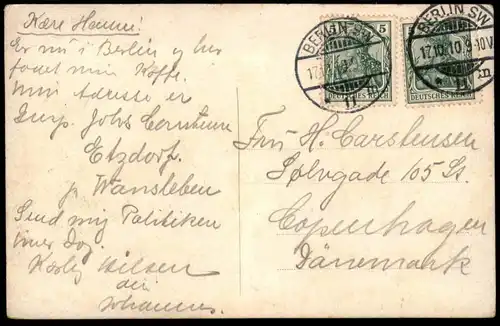 Kære Hanne!
Er nu i Berlin og her
faaet min Koffe.
Min Adresse er
Insp. Johs
Etzdorf
p. Wansleben
Send mig Politiken
hver Dag.
Kærlig Hilsen
din
Johannes.
BERLIN SW
5
DEUTSCHES REICH
BERLIN SW
17.10.10.9-10V.
DEUTSCHES REICH
Fru H. Carstensen
Sølvgade 105 St.
Copenhagen
Dänemark